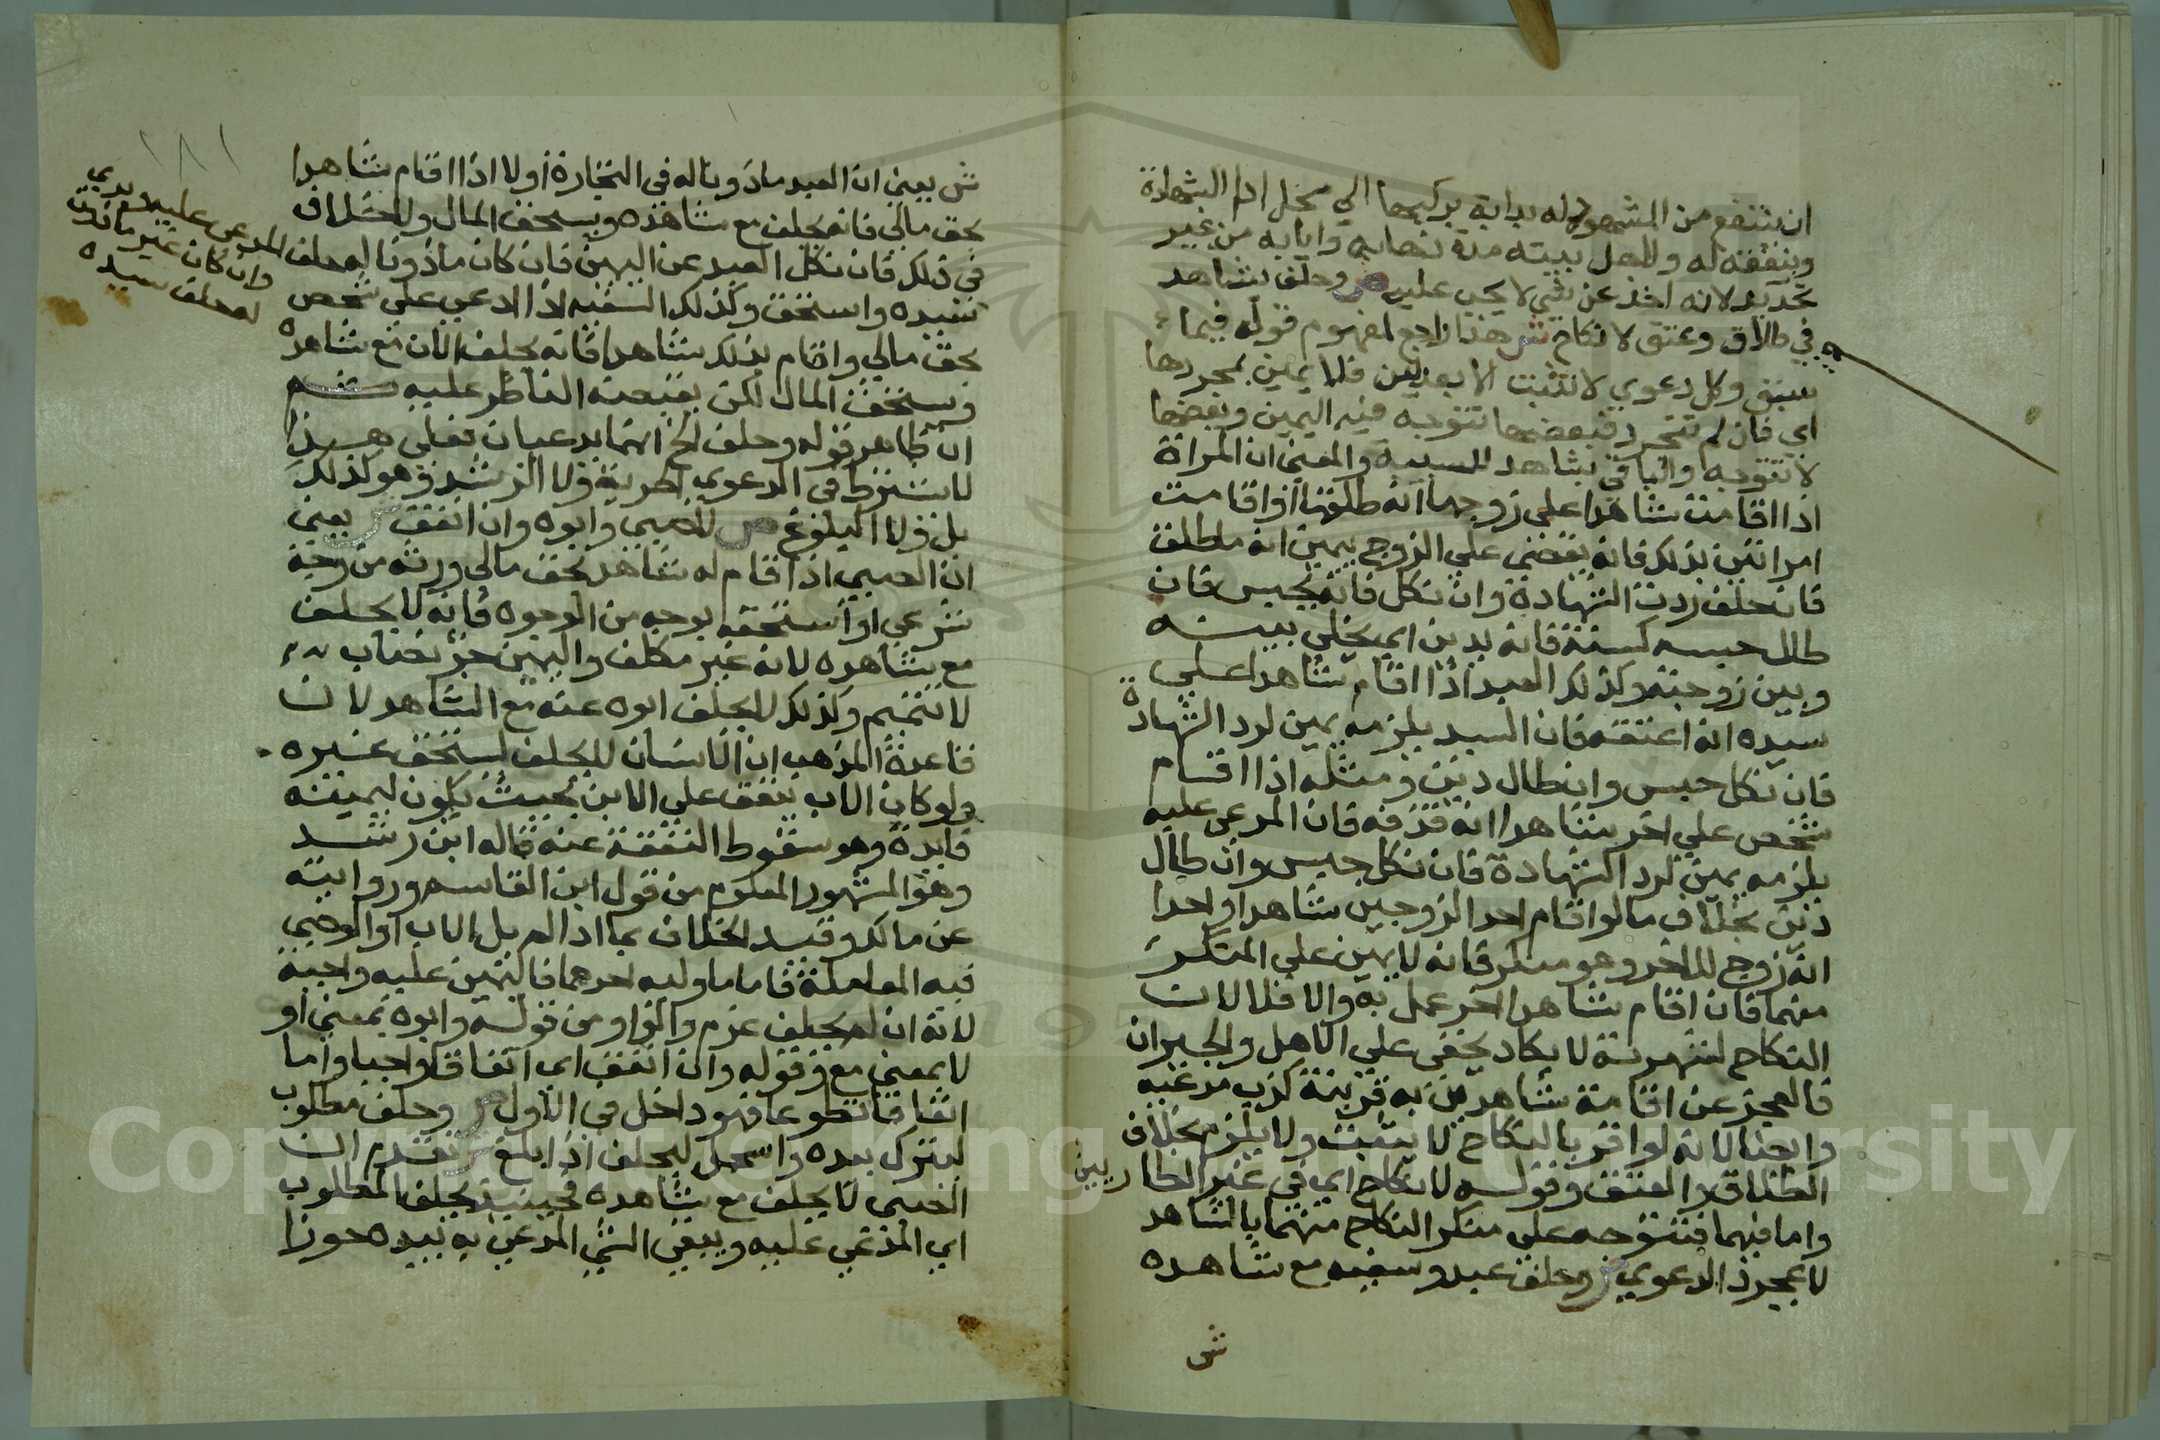 ان ينتفع من المشهود له بدابة يركبها الي محل ادا الشهادة
وبنفقته له ولاهل بيته مدة ذهابه وايابه من غير
تحديد لانه اخذ عن شي لا يجب عليه ص وحلف بشاهد
في طلاق وعتق لا نكاح ش هذا راجع لمفهوم قوله فيما
سبق وكل دعوي لا تثبت الا بعدلين فلا يمين بمجردها
اي فان لم تتجرد فبعضها تتوجه فيه اليمين وبعضها
لا تتوجه والباقي بشاهد للسببية والمعني ان المراة
اذا اقامت شاهدا علي زوجها انه طلقها او اقامت
امراتين بذلك فانه يقضي علي الزوج بيمين انه ما طلق
فان حلف ردت الشهادة وان نكل فانه يحبس فان
طال حبسه كسنة فانه يدين اي يخلي بينه
وبين زوجته وكذلك العبد اذا اقام شاهدا علي
سيده انه اعتقه فان السيد يلزمه يمين لرد الشهادة
فان نكل حبس وان طال دين ومثله اذا اقام
شخص علي اخر شاهدا انه قذفه فان المدعي عليه
يلزمه يمين لرد الشهادة فان نكل حبس وان طال
دين بخلاف ما لو اقام احد الزوجين شاهدا واحدا
انه زوج للاخر وهو منكر فانه لا يمين علي المنكر
منهما فان اقام شاهدا اخر عمل به والا فلا لان
النكاح لشهرته لا يكاد يخفي علي الاهل والجيران
فالعجز عن اقامة شاهدين به قرينة كذب مدعيه
وايضا لانه لو اقر بالنكاح لا يثبت ولا يلزم بخلاف
الطلاق والعتق وقوله لا نكاح اي في غير الطاريين
واما فيهما فتتوجه علي منكر النكاح منهما بالشاهد
لا بمجرد الدعوي ص وحلف عبد وسفيه مع شاهده
ش
١٨١
ش يعني ان العبد ماذونا له في التجارة او لا اذا اقام شاهدا
بحق مالي فانه يحلف مع شاهده ويستحق المال ولا خلاف
في ذلك فان نكل العبد عن اليمين فان كان ماذونا له حلف المدعي عليه وبري
وان كان غير ماذون
له حلف سيده
سيده واستحق وكذلك السفيه اذا ادعي علي شخص
بحق مالي واقام بذلك شاهدا فانه يحلف الان مع شاهده
ويستحق المال لكن يقبضه الناظر عليه ثم
ان ظاهر قوله وحلف الخ انهما يدعيان فعلي هذا
لا يشترط في الدعوي الحرية ولا الرشد وهو كذلك
بل ولا البلوغ ص لا صبي وابوه وان انفق ش يعني
ان الصبي اذا قام له شاهد بحق مالي ورثه من وجه
شرعي او استحقه بوجه من الوجوه فانه لا يحلف
مع شاهده لانه غير مكلف واليمين جزء نصاب
لا تتم وكذلك لا يحلف ابوه عنه مع الشاهد لان
قاعدة المذهب ان الانسان لا يحلف ليستحق غيره
ولو كان الاب ينفق علي الابن بحيث يكون ليمينه
فايدة وهو سقوط النفقة عنه قاله ابن رشد
وهو المشهور المعلوم من قول ابن القاسم وروايته
عن مالك وقيد الخلاف بما اذا لم يل الاب او الوصي
فيه المعاملة فاما ما وليه احدهما فاليمين عليه واجبة
لانه ان لم يحلف غرم والواو من قوله وابوه بمعني او
لا بمعني مع وقوله وان انفق اي انفاقا واجبا واما
انفاقا تطوعا فهو داخل في الاول ص وحلف مطلوب
ليترك بيده واسجل ليحلف اذا بلغ ش تقدم ان
الصبي لا يحلف مع شاهده فحينيذ يحلف المطلوب
اي المدعي عليه ويبقي الشي المدعي به بيده حوزا